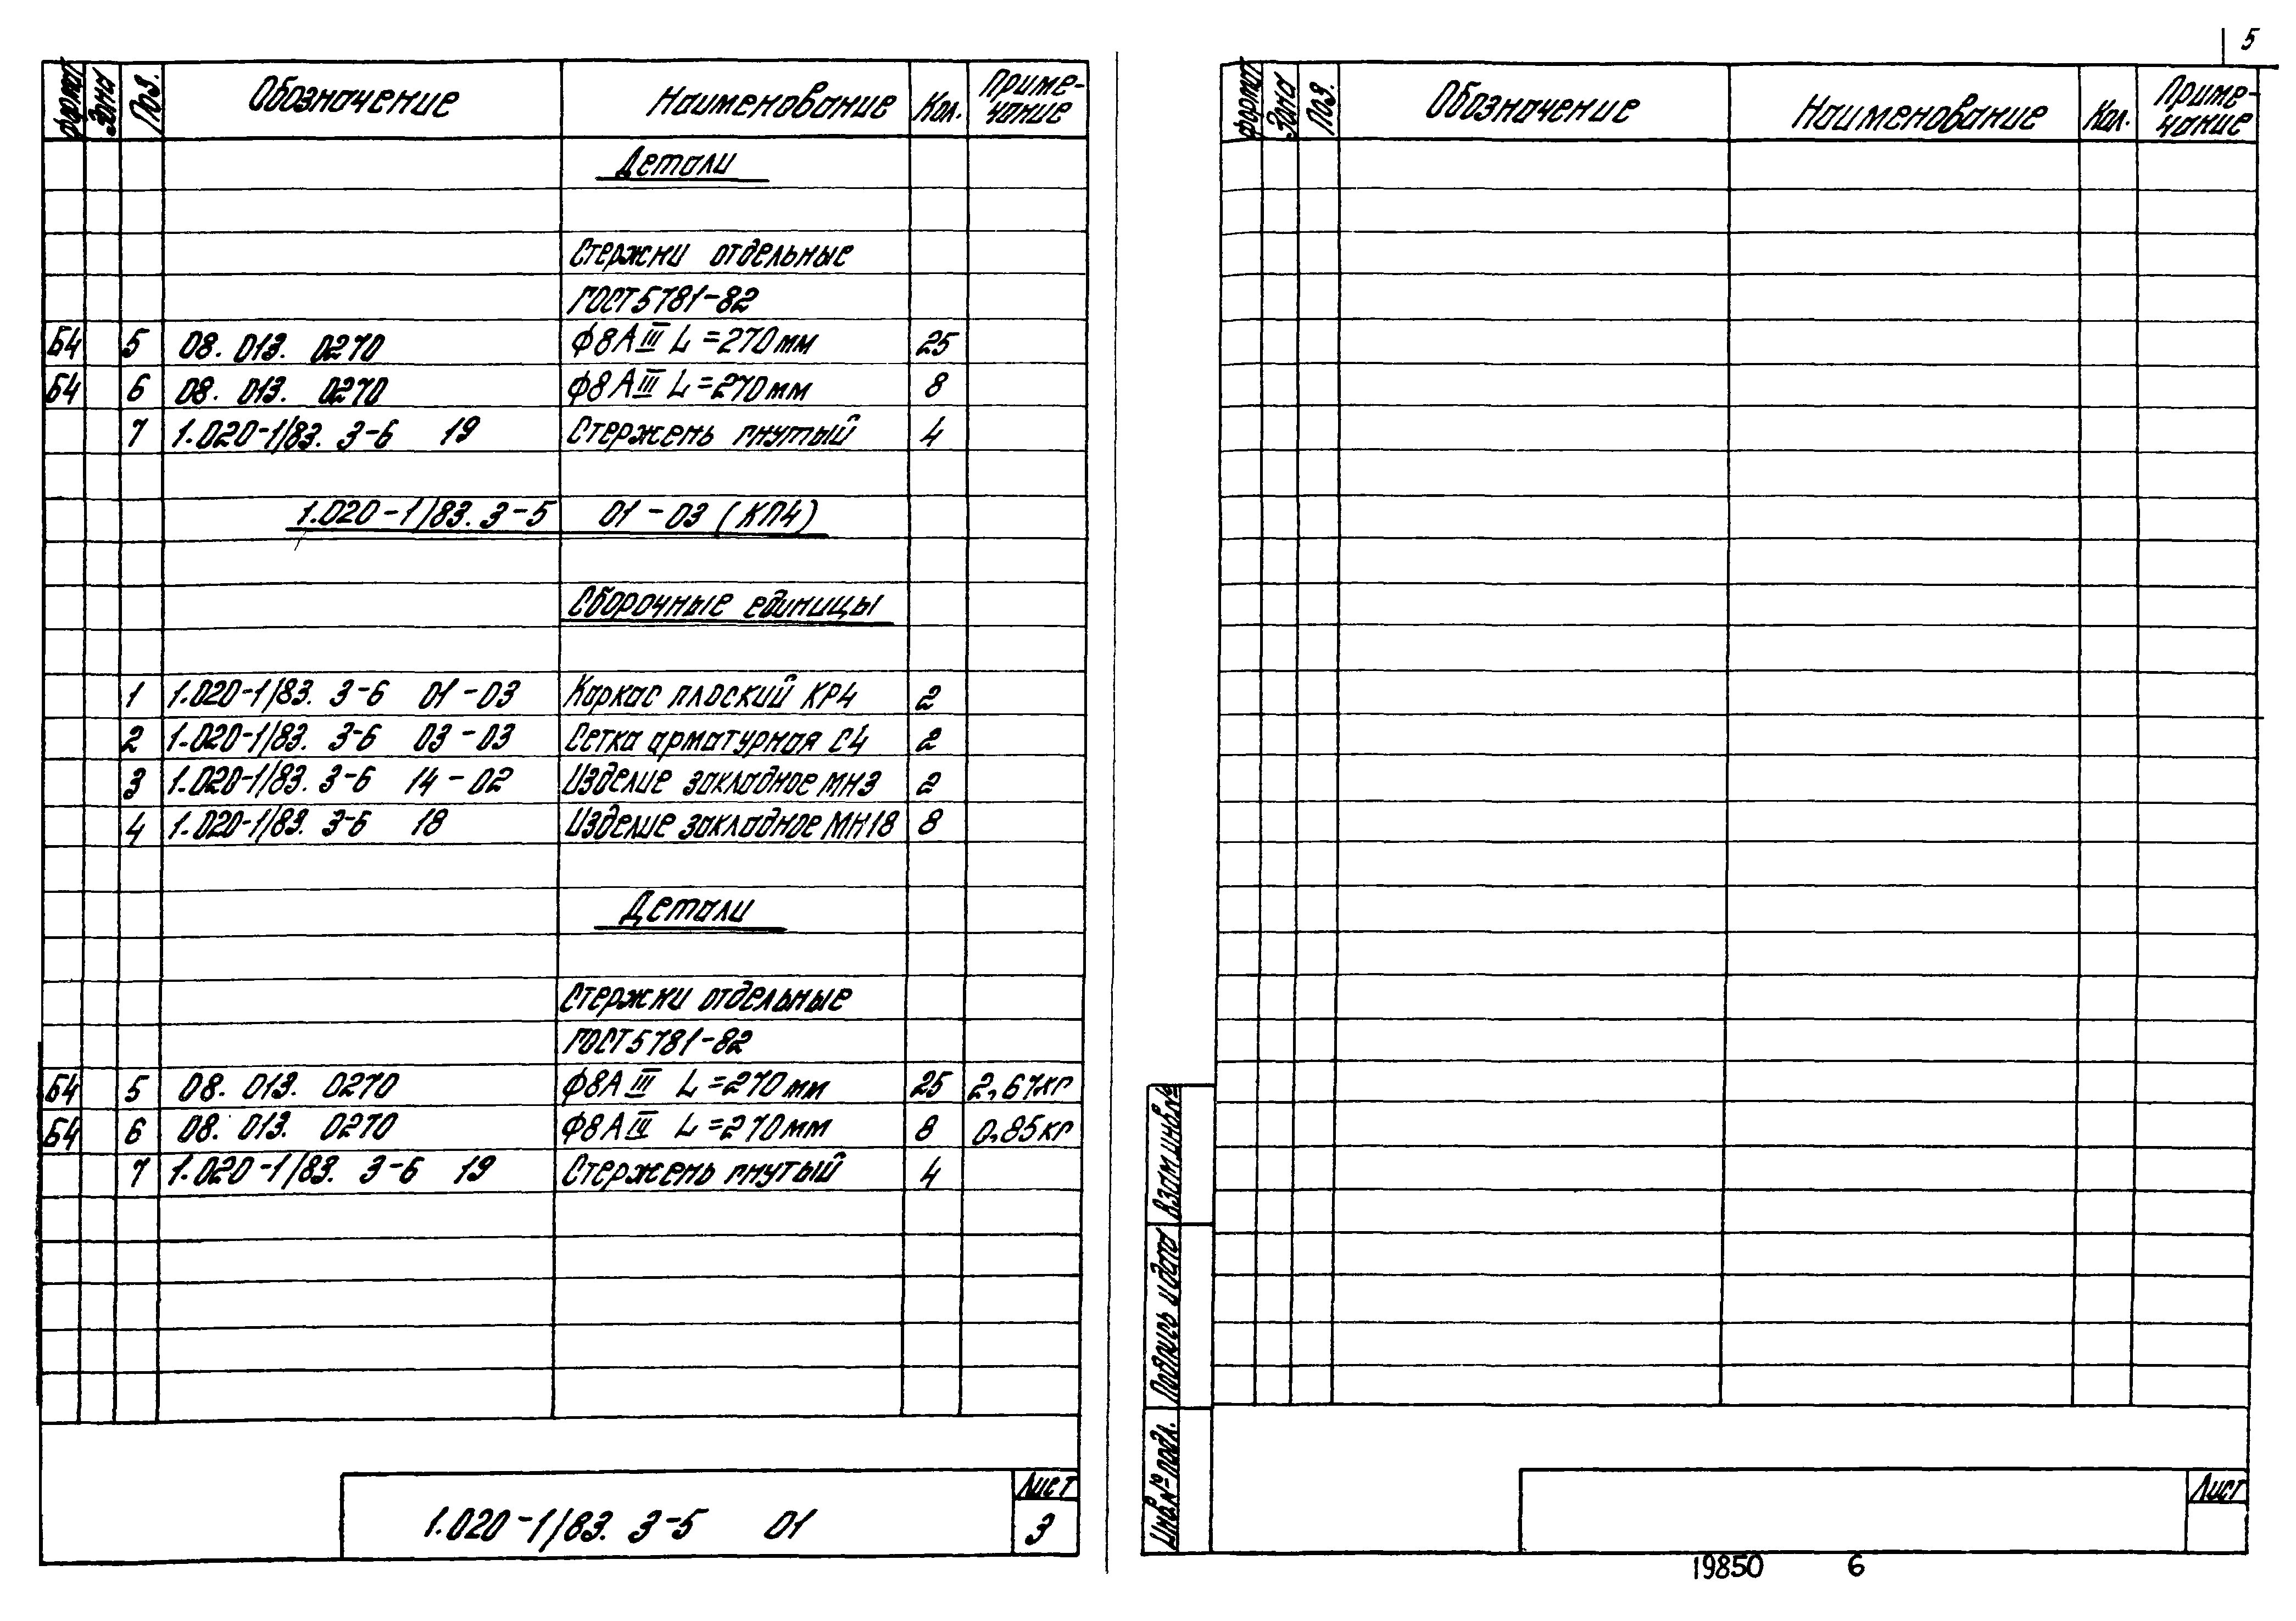 5
Формат Зона Поз. Обозначение Наименование Кол. Приме-
чание
Детали
Стержни отдельные
ГОСТ 5781-82
Б4 5 08. 013. 0270 Ф8АIII L=270мм 25
Б4 6 08. 013. 0270 Ф8АIII L=270мм 8
7 1.020-1/83. 3-6 19 Стержень гнутый 4
1.020-1/83. 3-5 01-03 (КП4)
Сборочные единицы
1 1.020-1/83. 3-6 01-03 Каркас плоский КР4 2
2 1.020-1/83. 3-6 03-03 Сетка арматурная С4 2
3 1.020-1/83. 3-6 14-02 Изделие закладное МН3 2
4 1.020-1/83. 3-6 18 Изделие закладное МН18 8
Детали
Стержни отдельные
ГОСТ 5781-82
Б4 5 08. 013. 0270 Ф8АIII L=270мм 25 2,67кг
Б4 6 08. 013. 0270 Ф8АIII L=270мм 8 0,85кг
7 1.020-1/83. 3-6 19 Стержень гнутый 4
1.020-1/83. 3-5 01
Лист
3
Формат Зона Поз. Обозначение Наименование Кол. Приме-
чание
Взам.инв.№
Подпись и дата
Инв.№ подл.
Лист
19850 6